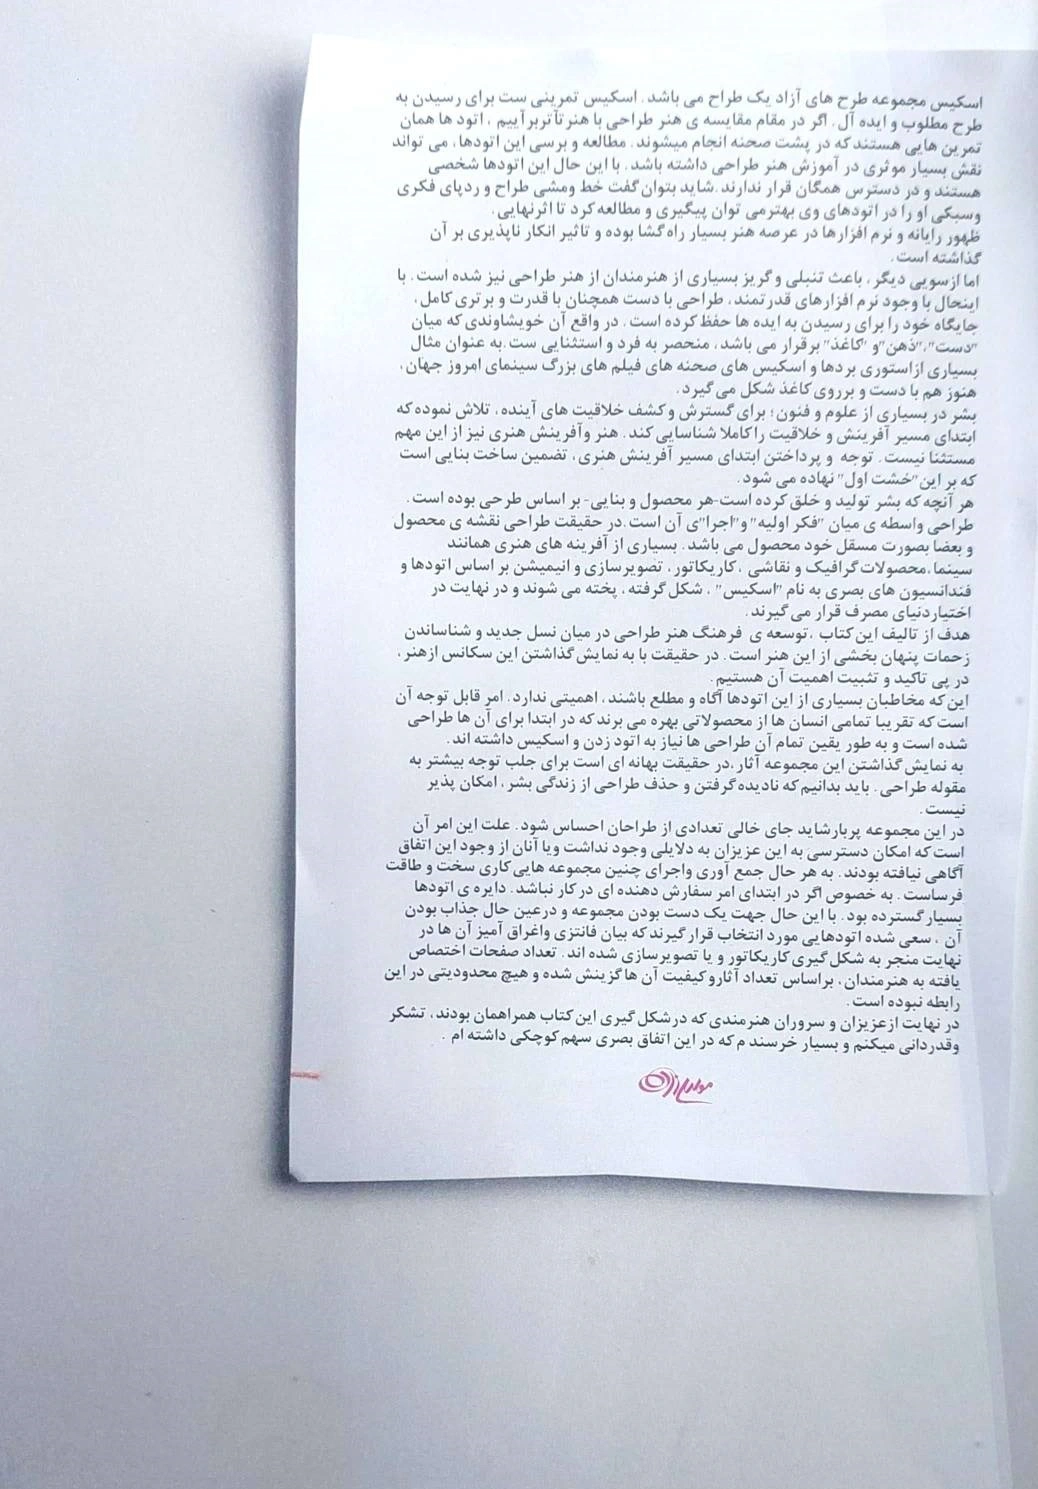 اسکیس مجموعه طرح های آزاد یک طراح می باشد . اسکیس تمرینی ست برای رسیدن به
طرح مطلوب و ایده آل . اگر در مقام مقایسه ی هنر طراحی با هنرتآتربرآییم ، اتود ها همان
تمرین هایی هستند که در پشت صحنه انجام میشوند . مطالعه و برسی این اتودها، می تواند
نقش بسیار موثری در آموزش هنر طراحی داشته باشد . با این حال این اتودها شخصی
هستند و در دسترس همگان قرار ندارند .شاید بتوان گفت خط ومشی طراح و ردپای فکری
وسبکی او را در اتودهای وی بهترمی توان پیگیری و مطالعه کرد تا اثرنهایی .
ظهور رایانه و نرم افزارها در عرصه هنر بسیار راه گشا بوده و تاثیر انکار ناپذیری بر آن
گذاشته است .
اما ازسویی دیگر ، باعث تنبلی و گریز بسیاری از هنرمندان از هنر طراحی نیز شده است . با
اینحال با وجود نرم افزارهای قدرتمند ، طراحی با دست همچنان با قدرت و برتری کامل ،
جایگاه خود را برای رسیدن به ایده ها حفظ کرده است . در واقع آن خویشاوندی که میان
"دست"،"ذهن"و "کاغذ" برقرار می باشد ، منحصر به فرد و استثنایی ست .به عنوان مثال
بسیاری ازاستوری بردها و اسکیس های صحنه های فیلم های بزرگ سینمای امروز جهان ،
هنوز هم با دست و برروی کاغذ شکل می گیرد .
بشر در بسیاری از علوم و فنون ؛ برای گسترش و کشف خلاقیت های آینده ، تلاش نموده که
ابتدای مسیر آفرینش و خلاقیت را کاملا شناسایی کند . هنر وآفرینش هنری نیز از این مهم
مستثنا نیست . توجه و پرداختن ابتدای مسیر آفرینش هنری ، تضمین ساخت بنایی است
که بر این "خشت اول" نهاده می شود .
هر آنچه که بشر تولید و خلق کرده است-هر محصول و بنایی- بر اساس طرحی بوده است .
طراحی واسطه ی میان "فکر اولیه" و"اجرا"ی آن است .در حقیقت طراحی نقشه ی محصول
و بعضا بصورت مسقل خود محصول می باشد . بسیاری از آفرینه های هنری همانند
سینما،محصولات گرافیک و نقاشی ، کاریکاتور ، تصویرسازی و انیمیشن بر اساس اتودها و
فندانسیون های بصری به نام "اسکیس" ، شکل گرفته ، پخته می شوند و در نهایت در
اختیاردنیای مصرف قرار می گیرند .
هدف از تالیف این کتاب ، توسعه ی فرهنگ هنر طراحی در میان نسل جدید و شناساندن
زحمات پنهان بخشی از این هنر است . در حقیقت با به نمایش گذاشتن این سکانس ازهنر ،
در پی تاکید و تثبیت اهمیت آن هستیم .
این که مخاطبان بسیاری از این اتودها آگاه و مطلع باشند ، اهمیتی ندارد . امر قابل توجه آن
است که تقریبا تمامی انسان ها از محصولاتی بهره می برند که در ابتدا برای آن ها طراحی
شده است و به طور یقین تمام آن طراحی ها نیاز به اتود زدن و اسکیس داشته اند .
به نمایش گذاشتن این مجموعه آثار،در حقیقت بهانه ای است برای جلب توجه بیشتر به
مقوله طراحی . باید بدانیم که نادیده گرفتن و حذف طراحی از زندگی بشر ، امکان پذیر
نیست .
در این مجموعه پربارشاید جای خالی تعدادی از طراحان احساس شود . علت این امر آن
است که امکان دسترسی به این عزیزان به دلایلی وجود نداشت ویا آنان از وجود این اتفاق
آگاهی نیافته بودند . به هر حال جمع آوری واجرای چنین مجموعه هایی کاری سخت و طاقت
فرساست . به خصوص اگر در ابتدای امر سفارش دهنده ای در کار نباشد . دایره ی اتودها
بسیار گسترده بود . با این حال جهت یک دست بودن مجموعه و درعین حال جذاب بودن
آن ، سعی شده اتودهایی مورد انتخاب قرار گیرند که بیان فانتزی واغراق آمیز آن ها در
نهایت منجر به شکل گیری کاریکاتور و یا تصویرسازی شده اند . تعداد صفحات اختصاص
یافته به هنرمندان ، براساس تعداد آثارو کیفیت آن ها گزینش شده و هیچ محدودیتی در این
رابطه نبوده است .
در نهایت ازعزیزان و سروران هنرمندی که درشکل گیری این کتاب همراهمان بودند ، تشکر
وقدردانی میکنم و بسیار خرسند م که در این اتفاق بصری سهم کوچکی داشته ام .